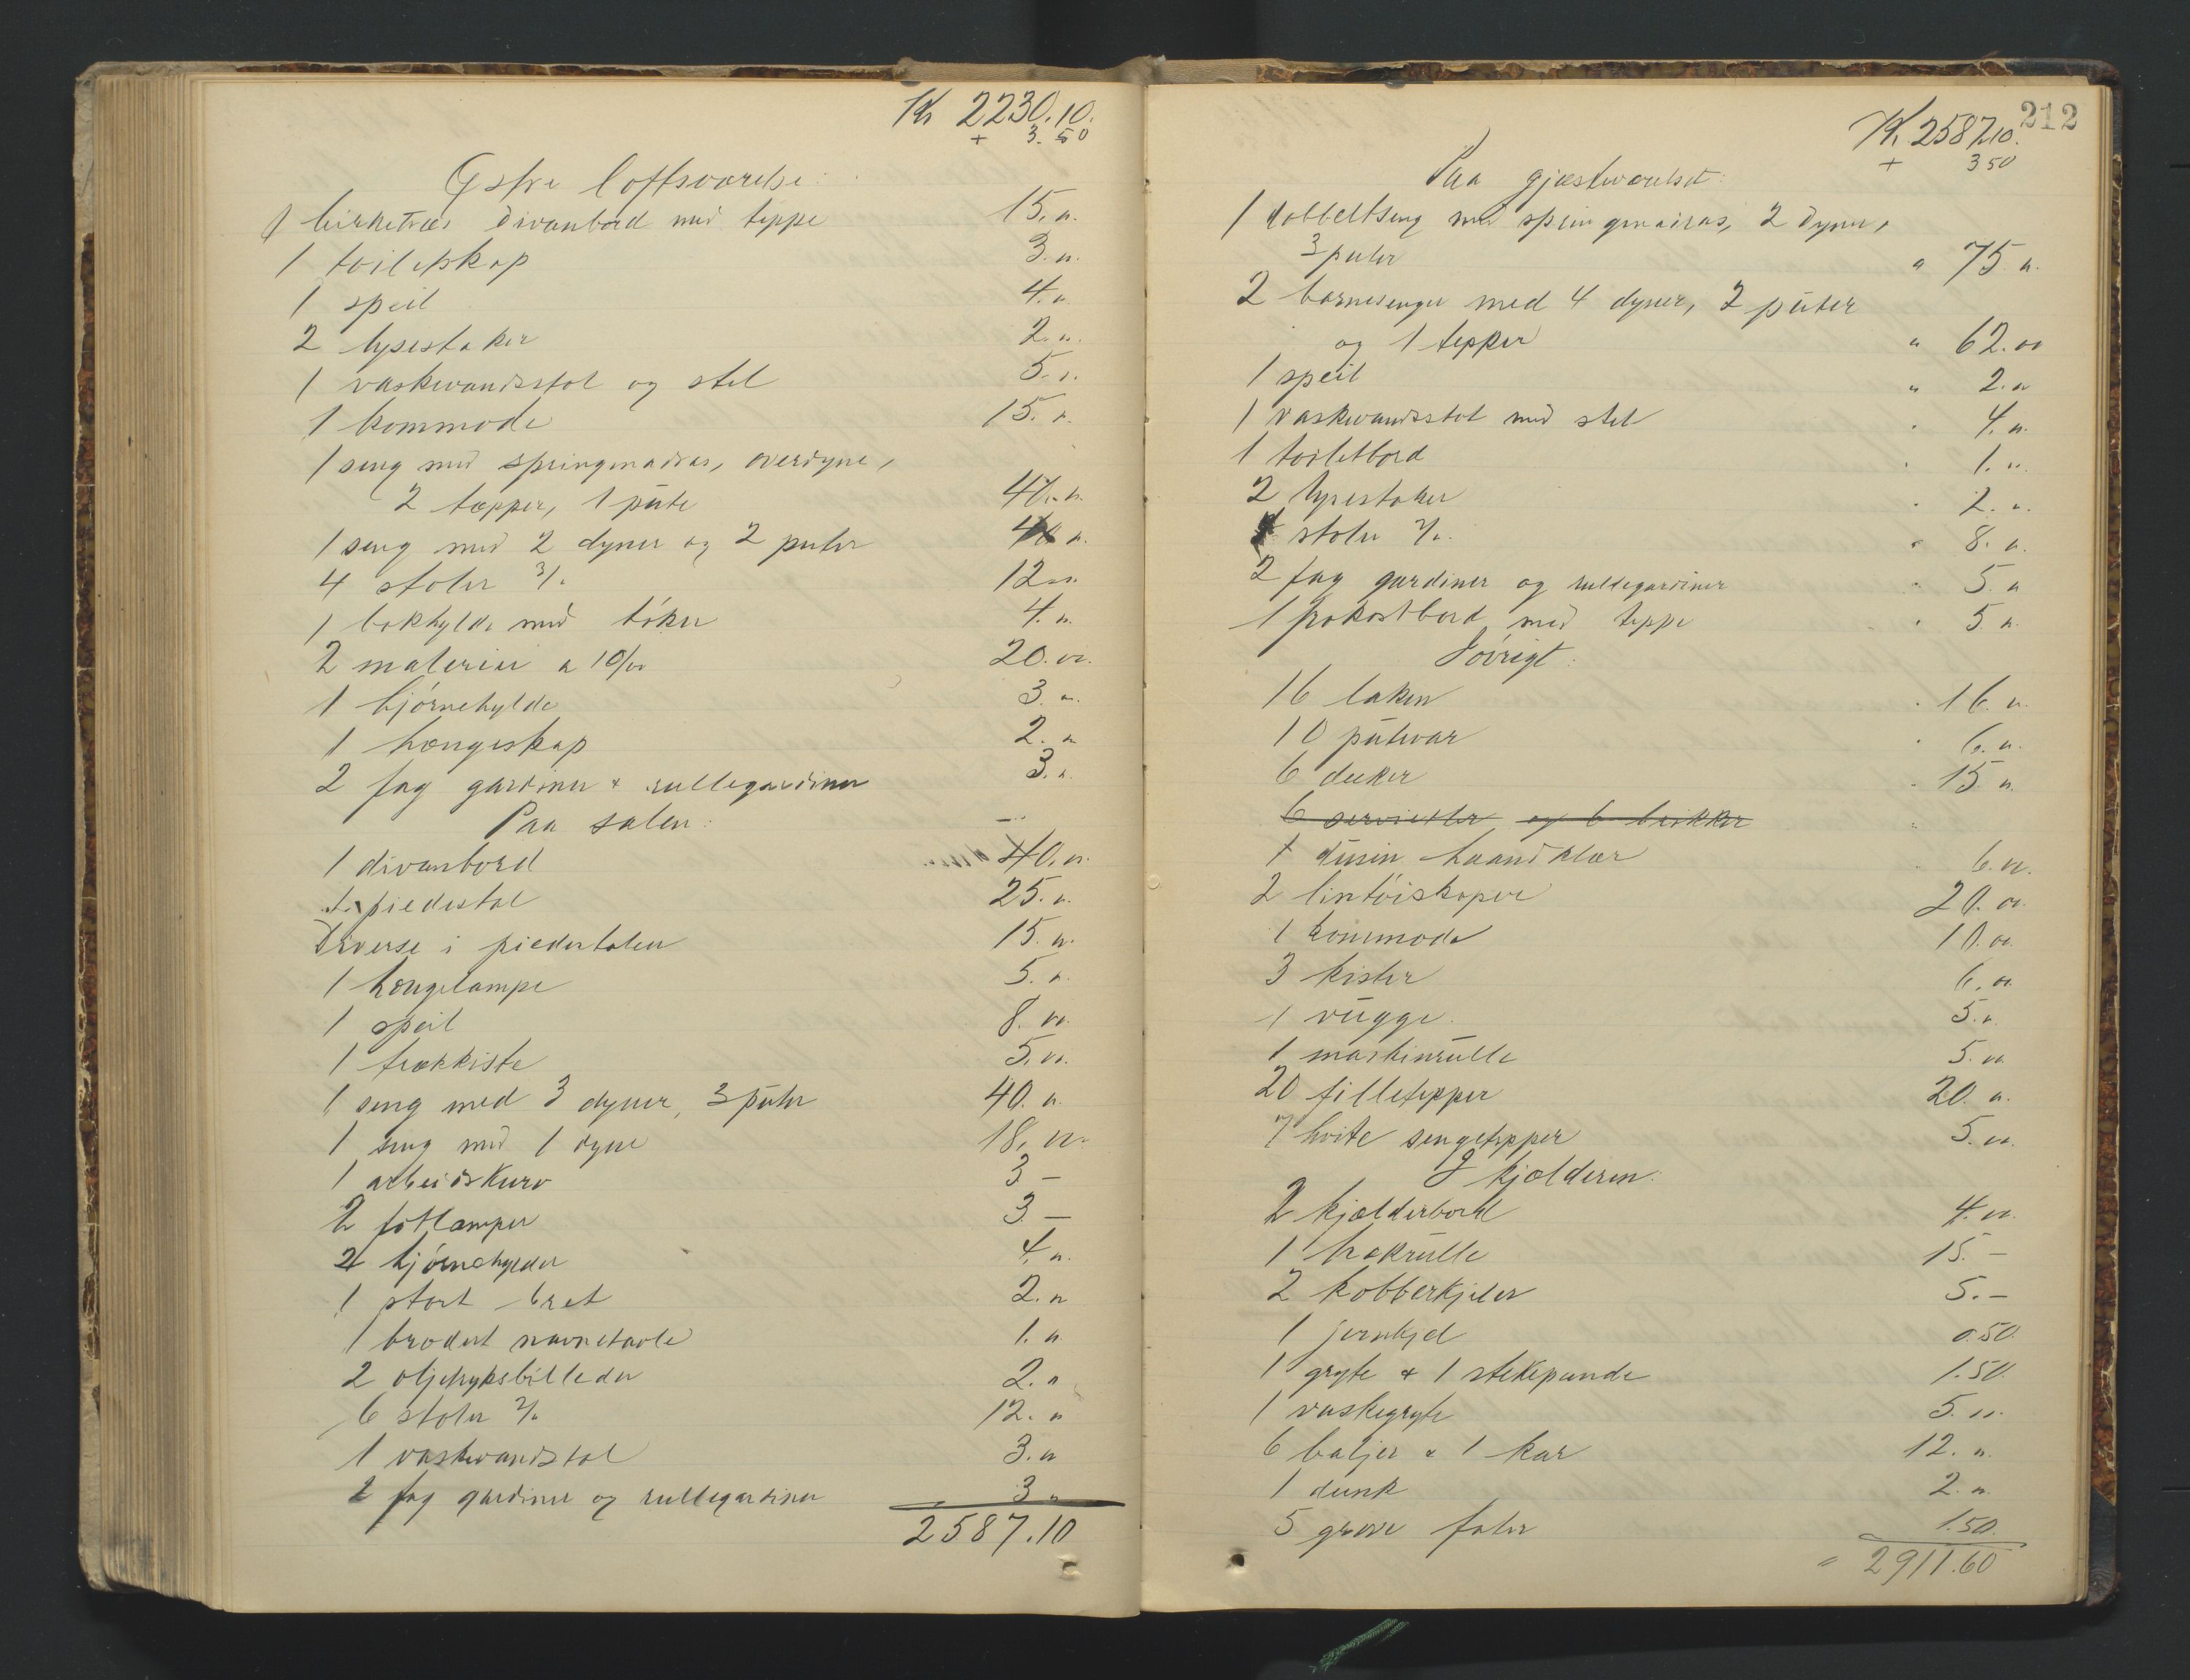 Kr 2230.10.
+ 3.50
Østre loftsværelse:
1 birketræs divanbord med teppe 15.00
1 toiletskap 3.00
1 speil 4.00
2 lysestaker 2.00
1 vaskevandsstol og stel 5.00
1 kommode 15.00
1 seng med springmadras, overdyne,
2 tæpper, 1 pute
1 seng med 2 dyner og 2 puter
4 stoler 3/00 12.00
1 bokhylde med bøker 4.00
2 malerier a 10/00 20.00
1 hjørnehylde 3.00
1 hængeskap 2.00
2 fag gardiner & rullegardiner 3.00
Paa salen:
1 divanbord 40.00
1 piedestal 25.00
Diverse i piedestalen 15.00
1 hængelampe 5.00
1 speil 8.00
1 trækkiste 5.00
1 seng med 3 dyner, 3 puter 40.00
1 seng med 1 dyne 18.00
1 arbeidskurv 3 —
2 fotlamper 3 —
2 hjørnehylder 4.00
1 stort bret 2.00
1 brodert navnetavle 1.00
2 oljetryksbilleder 2.00
6 stoler 2/00 12.00
1 vaskevandstol 3.00
2 fag gardiner og rullegardiner 3.00
2587.10
212
Kr. 2587.10.
+ 3 50
Paa gjæsteværelset:
1 dobbeltseng med springmadras, 2 dyner,
3 puter " 75.00
2 barnesenger med 4 dyner, 2 puter
og 1 tepper " 62.00
1 speil " 2.00
1 vaskevandsstol med stel " 4.00
1 toiletbord " 1.00
2 lysestaker " 2.00
4 stoler 2/00 " 8.00
2 fag gardiner og rullegardiner " 5.00
1 frokostbord med teppe " 5.00
Iøvrigt:
16 laken " 16.00
10 putevar " 6.00
6 duker " 15.00
6 servietter og 6 brikker
1 dusin haandklær 6.00
2 lintøiskaper 20.00
1 kommode 10.00
3 kister 6.00
1 vugge 5.00
1 maskinrulle 5.00
20 filletepper 20.00
7 hvite sengetepper 5.00
I kjælderen:
2 kjælderbord 4.00
1 hakrulle 15.—
2 kobberkjeler 5.—
1 jernkjel 0.50
1 gryte & 1 stekepande 1.50
1 vaskegryte 5.00
6 baljer & 1 kar 12.00
1 dunk 2.00
5 grove fater 1.50
" 2911.60